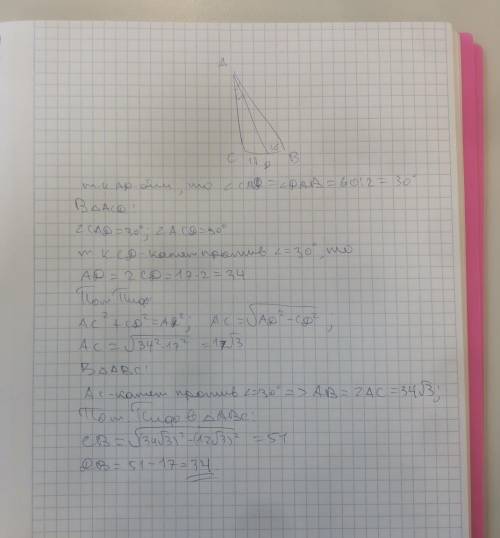 A
C 17 D В
т.к AD - бис, то ∠CAD = ∠DAB = 60:2 = 30°
В △ACD:
∠CAD=30°; ∠ACD=90°
т.к CD - катет против ∠=30°, то
AD = 2CD = 17·2 = 34
По т. Пиф
AC² + CD² = AD²; AC = √AD² - CD²;
AC = √34²-17² = 17√3
В △ABC:
AC - катет против ∠=30° => AB = 2AC = 34√3;
По т. Пифа в △ABC:
CB = √(34√3)² - (17√3)² = 51
DB = 51 - 17 = 34